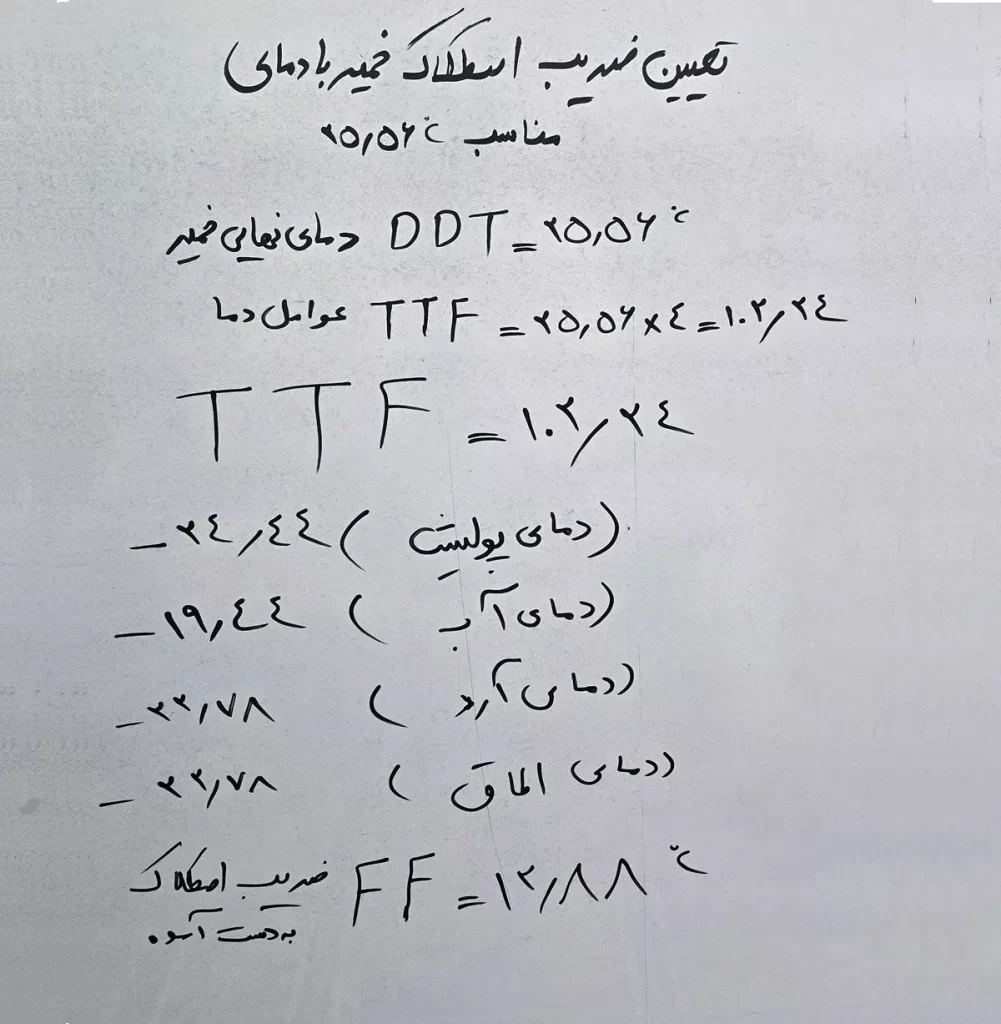 تعیین ضریب اصطکاک خمیر با دمای
مناسب ۲۵٫۵۶ °C
دمای نهایی خمیر DDT = ۲۵٫۵۶ °C
عوامل دما TTF = ۲۵٫۵۶ × ٤ = ۱۰۲٫۲٤
TTF = ۱۰۲٫۲٤
(دمای پولیش) ۲٤٫٤٤ –
(دمای آب) ۱۹٫٤٤ –
(دمای آرد) ۲۲٫۷۸ –
(دمای اطاق) ۲۲٫۷۸ –
ضریب اصطکاک FF = ۱۲٫۸۸ °C
به دست آمده